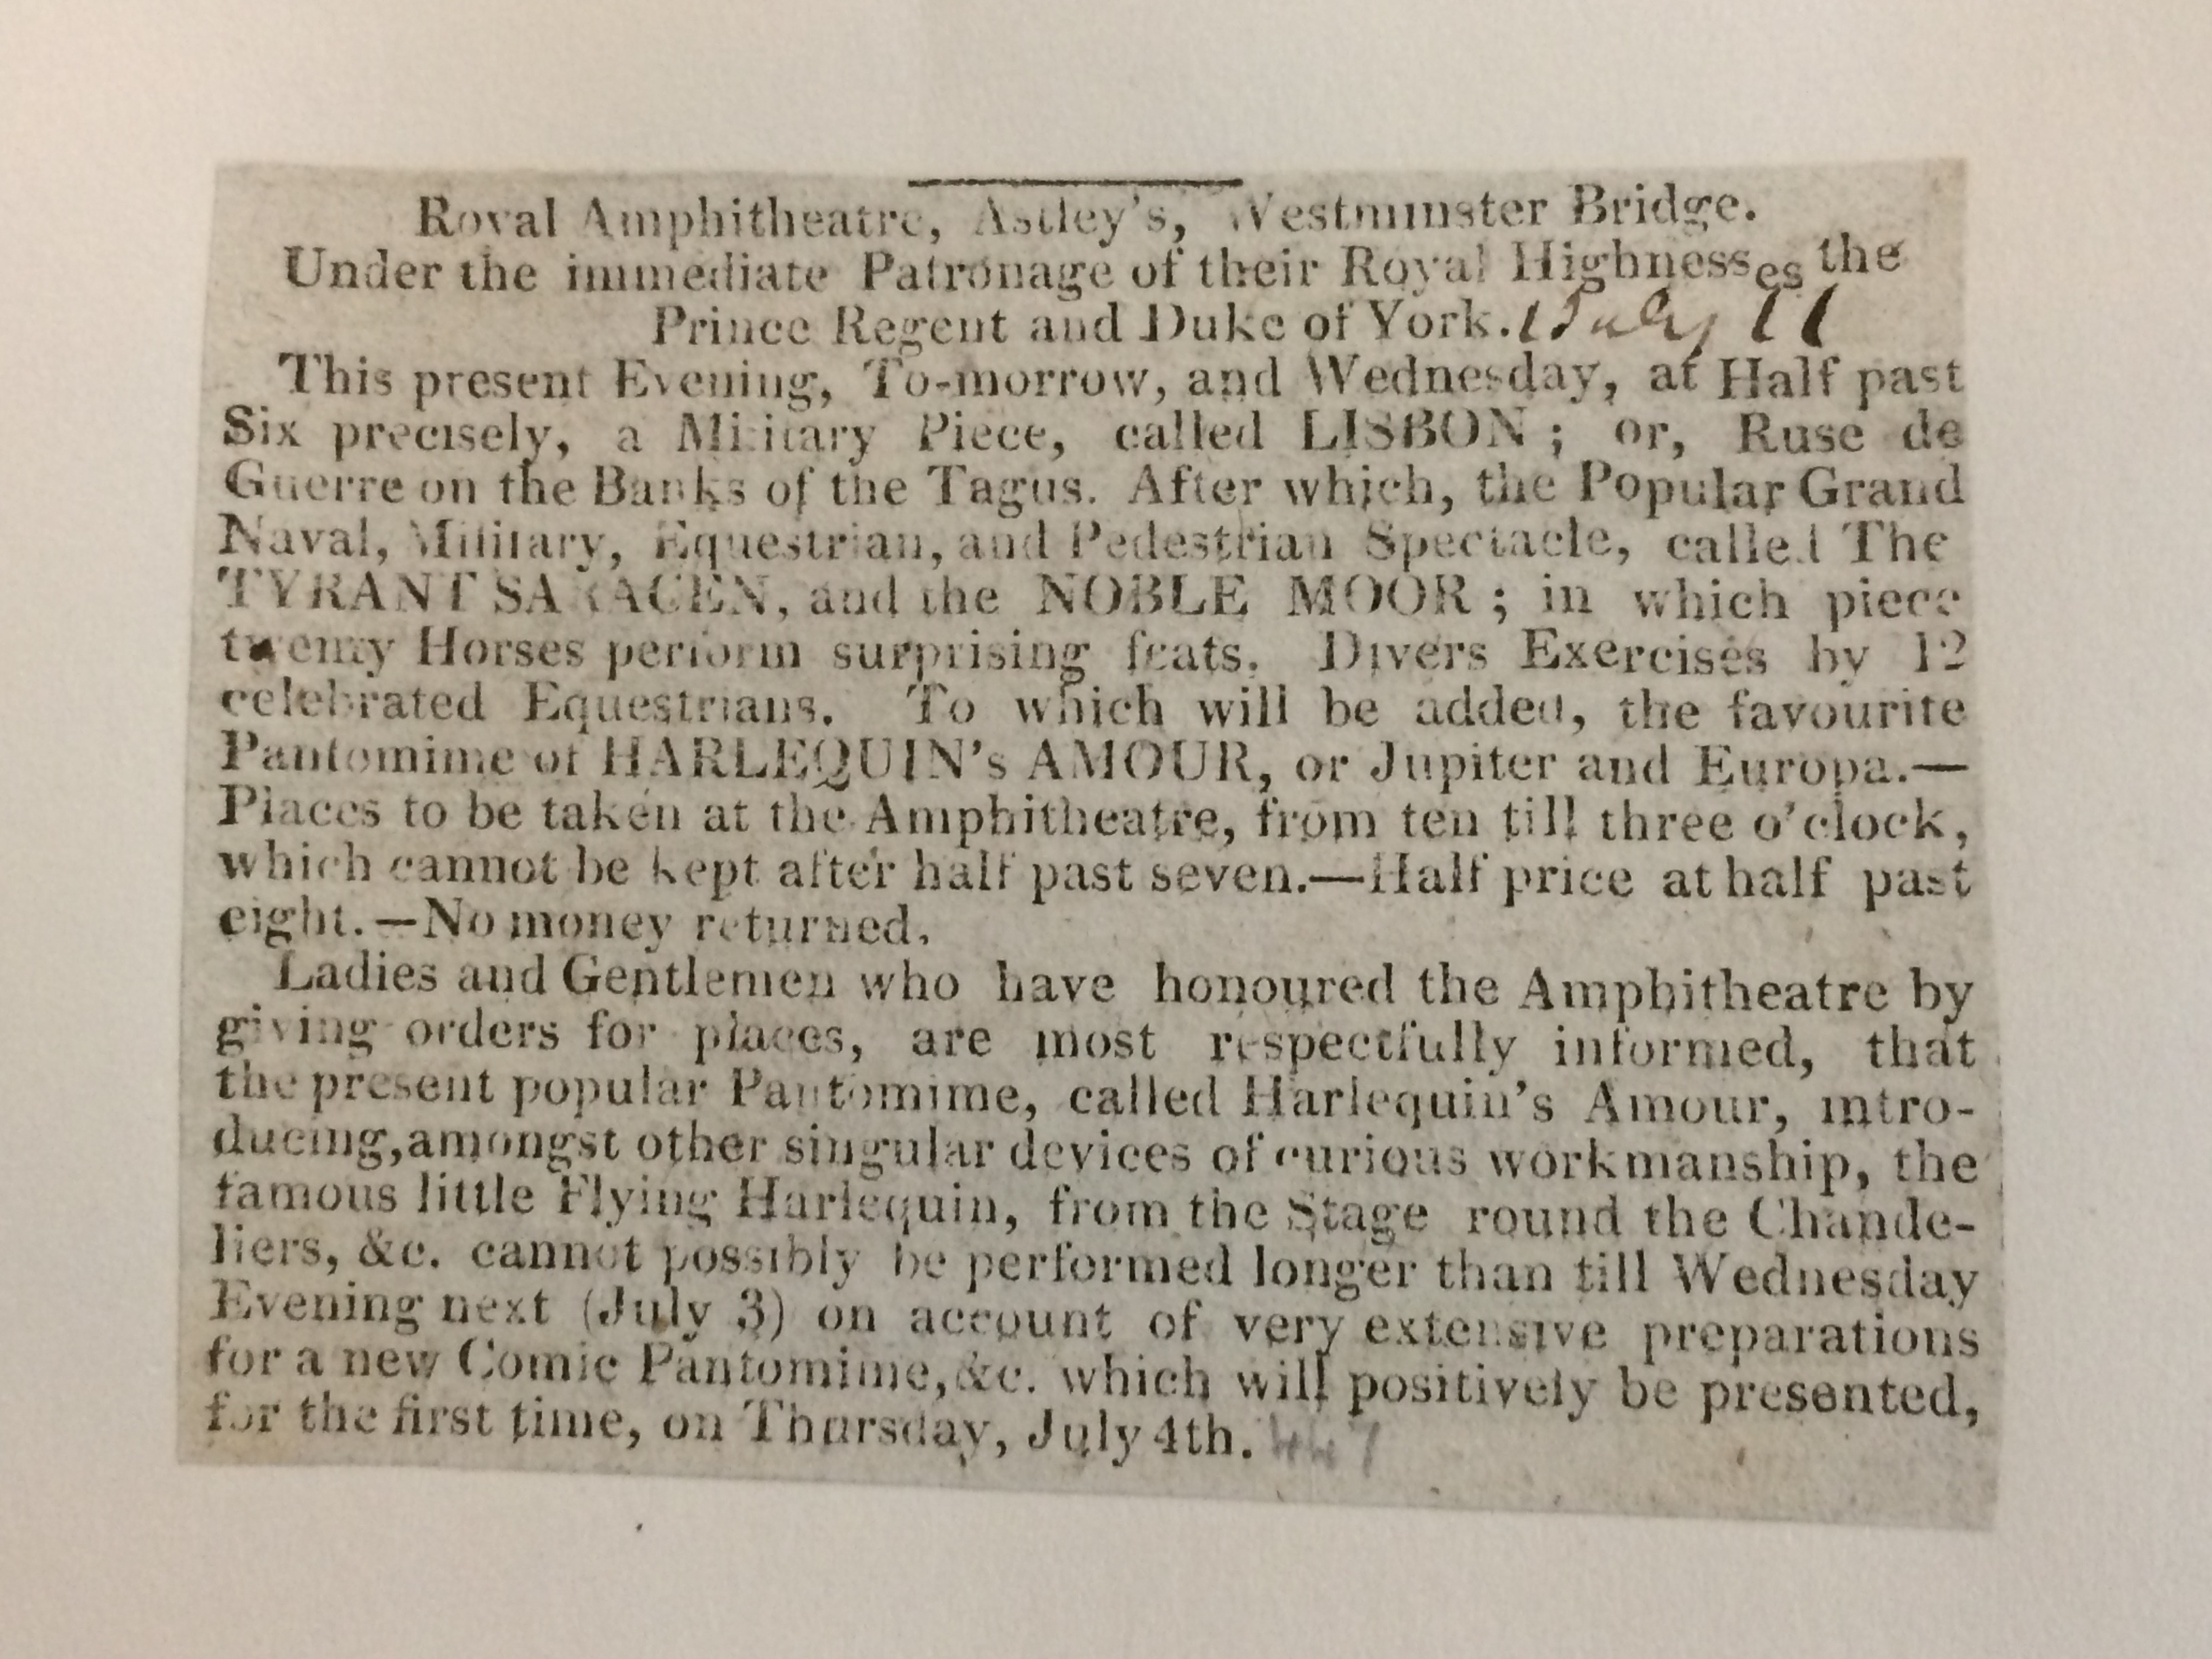 Royal Amphitheatre, Astley's, Westminster Bridge.
Under the immediate Patronage of their Royal Highnesses the
Prince Regent and Duke of York. 1 July 11
This present Evening, To-morrow, and Wednesday, at Half past
Six precisely, a Military Piece, called LISBON; or, Ruse de
Guerre on the Banks of the Tagus. After which, the Popular Grand
Naval, Military, Equestrian, and Pedestrian Spectacle, called The
TYRANT SARACEN, and the NOBLE MOOR; in which piece
twenty Horses perform surprising feats. Divers Exercises by 12
celebrated Equestrians. To which will be added, the favourite
Pantomime of HARLEQUIN's AMOUR, or Jupiter and Europa.—
Places to be taken at the Amphitheatre, from ten till three o'clock,
which cannot be kept after half past seven.—Half price at half past
eight.—No money returned.
Ladies and Gentlemen who have honoured the Amphitheatre by
giving orders for places, are most respectfully informed, that
the present popular Pantomime, called Harlequin's Amour, intro-
ducing, amongst other singular devices of curious workmanship, the
famous little Flying Harlequin, from the Stage round the Chande-
liers, &c. cannot possibly be performed longer than till Wednesday
Evening next (July 3) on account of very extensive preparations
for a new Comic Pantomime, &c. which will positively be presented,
for the first time, on Thursday, July 4th. 447